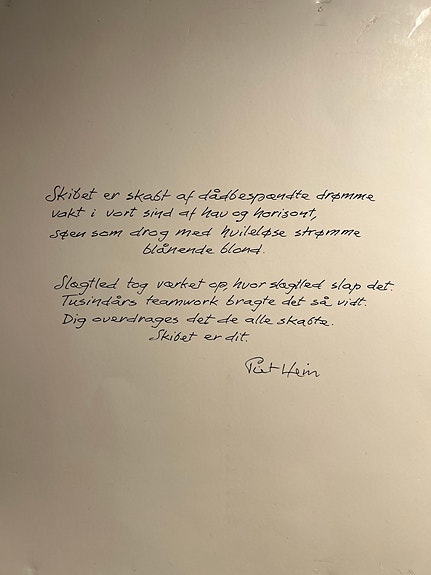 Skibet er skabt af dådbespændte drømme
vakt i vort sind af hav og horisont,
søen som drog med hvileløse strømme
blånende blond.
Slægtled tog værket op, hvor slægtled slap det.
Tusindårs teamwork bragte det så vidt.
Dig overdrages det de alle skabte.
Skibet er dit.
Piet Hein